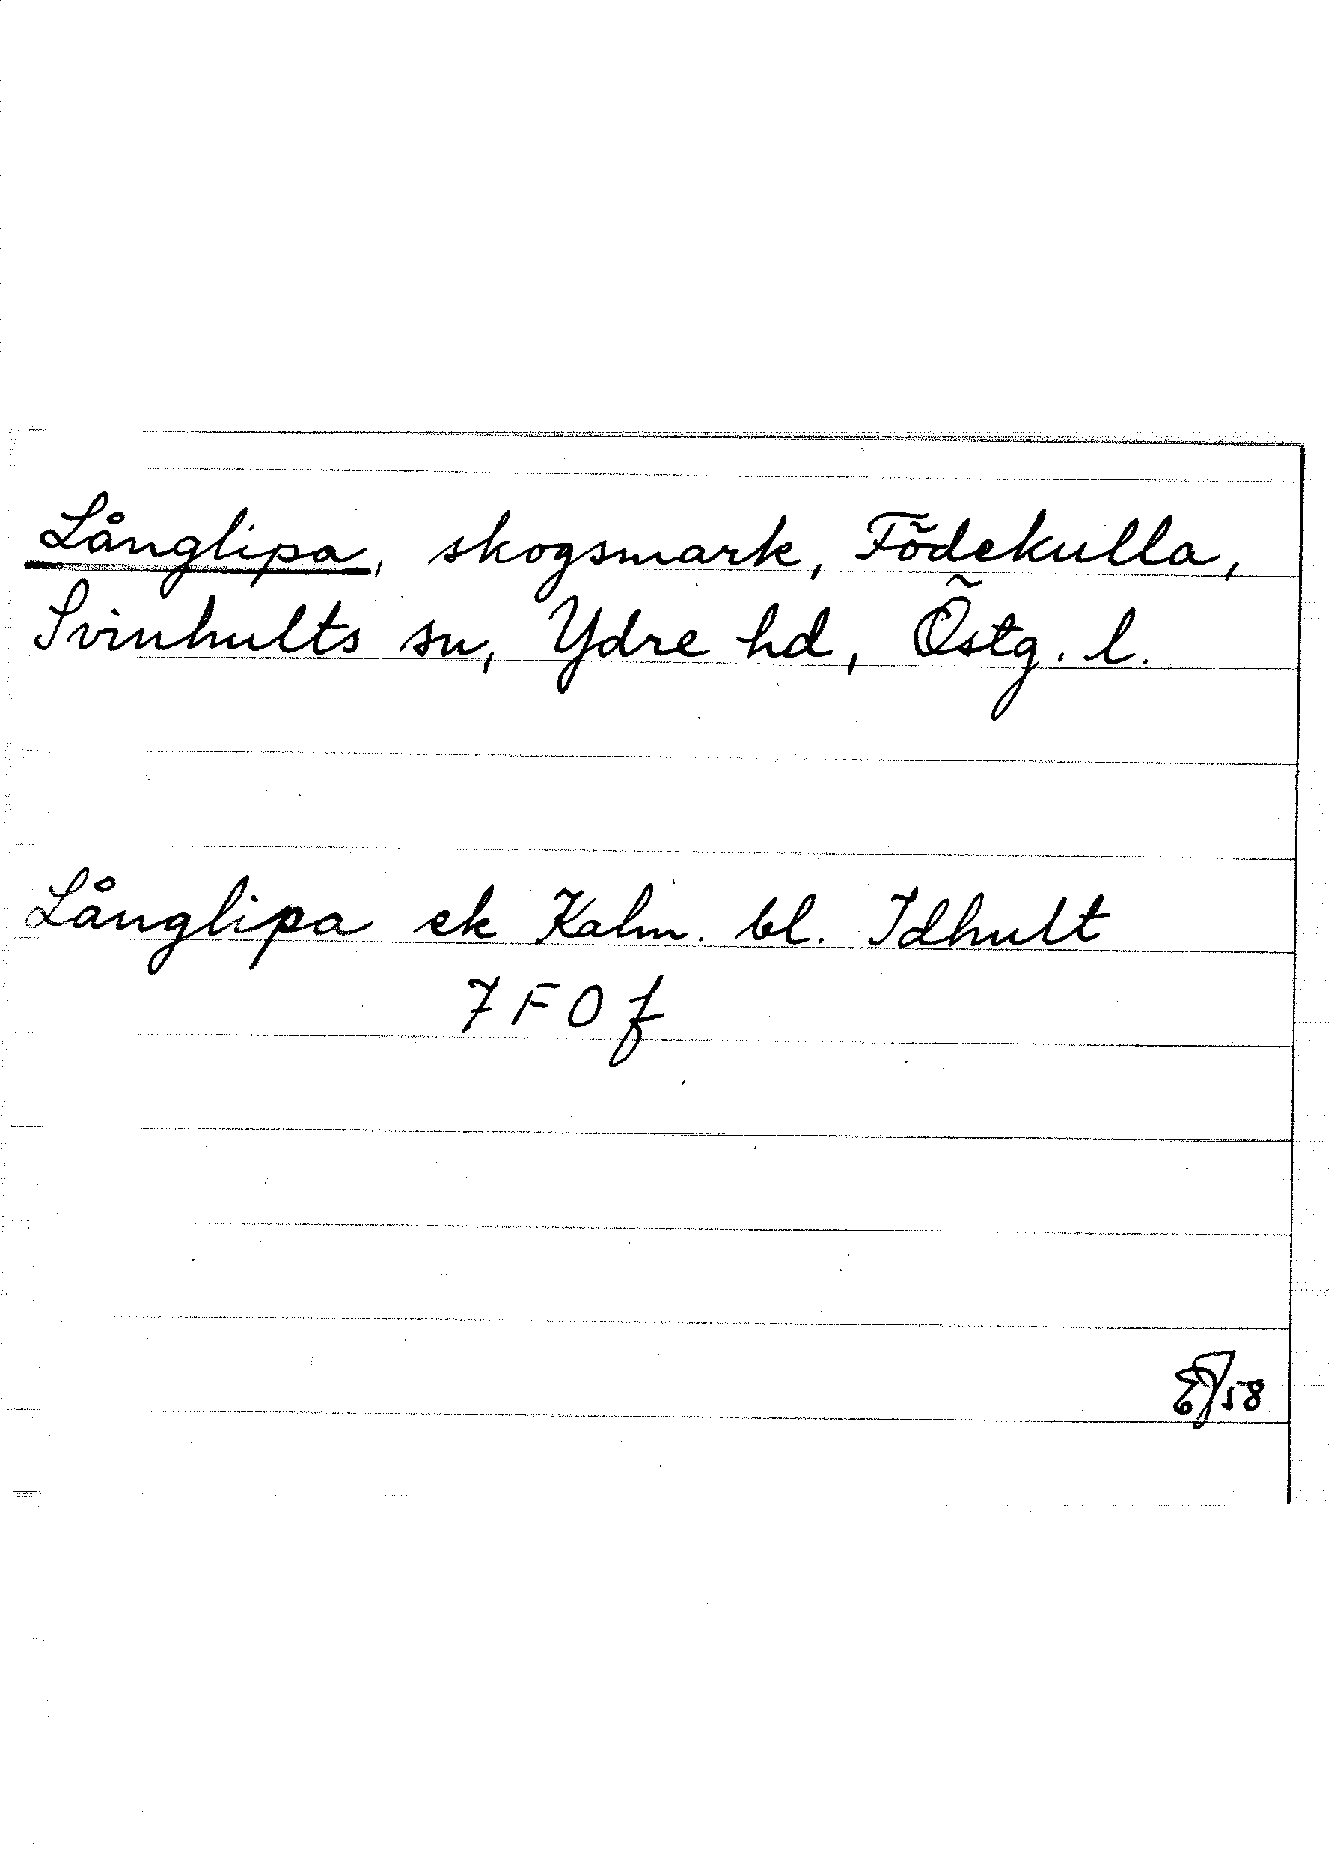 Långlipa, skogsmark, Födekulla,
Svinhults sn, Ydre hd, Östg. l.
Långlipa ek Kalm. bl. Idhult
7 F 0 f
58